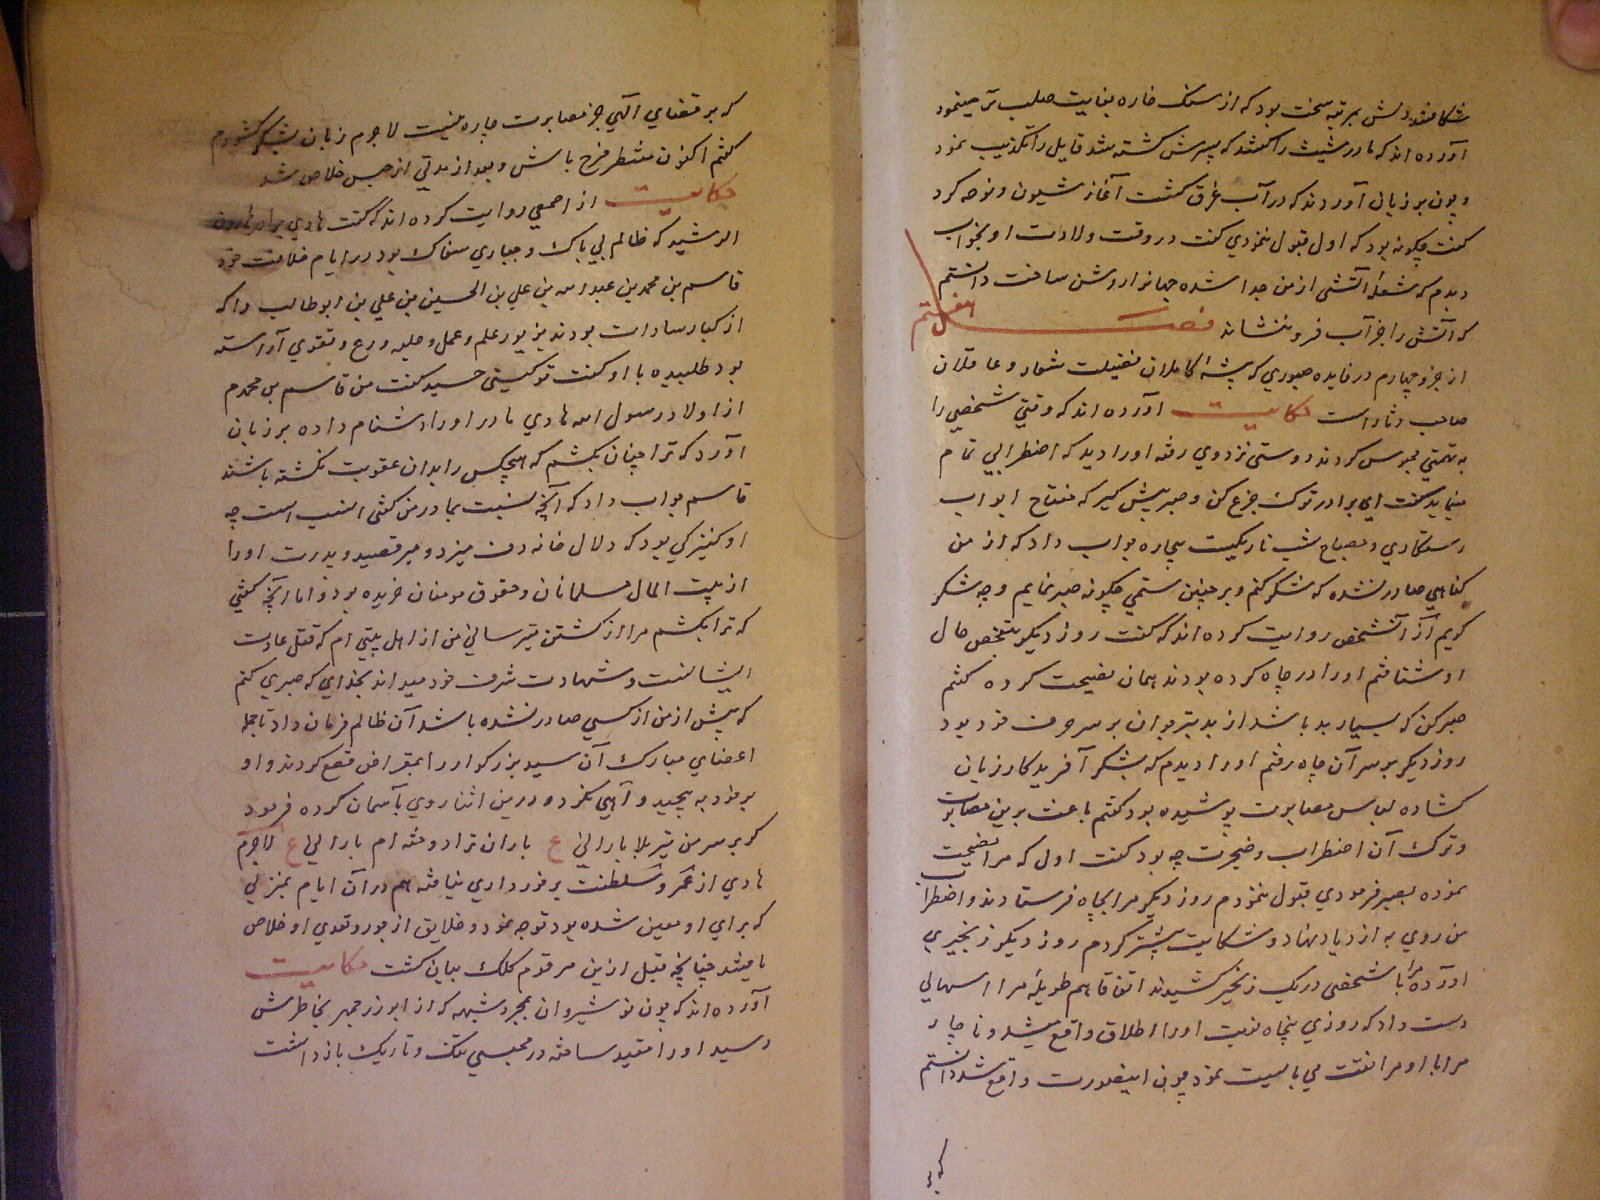 شکافتند دلش بمرتبه سخت بود که از سنک خاره بغایت صلب تر مینمود
آورده اند که مادر شیث را کفتند که پسرش کشته شد قایل را تکذیب نمود
و چون بر زبان آوردند که در آب غرق کشت آغاز شیون و نوحه کرد
کفت چکونه بود که اول قبول ننمودی کفت در وقت ولادت او بخواب
دیدم که شعلهٔ آتشی از من جدا شده جهانرا روشن ساخت دانستم
که آتش را جز آب فرو ننشاند فصل هفتم
از جزو چهارم در فایده صبوری که پیشهٔ کاملان فضیلت شعار و عاقلان
صاحب وثار است حکایت آورده اند که وقتی شخصی را
به تهمتی محبوس کردند دوستی نزد وی رفته او را دید که اضطرابی تمام
مینماید کفت ای برادر ترک جزع کن و صبر پیش کیر که مفتاح ابواب
رستکاری و مصباح شب تاریکیست بیچاره جواب داد که از من
کناهی صادر نشده که شکر کنم و بر چنین ستمی چکونه صبر نمایم و چه شکر
کویم از آنشخص روایت کرده اند که کفت روز دیکر بتفحص حال
او شتافتم او را در چاه کرده بودند همان نصیحت کرده کفتم
صبر کن که بسیار بد باشد از بد بتر جوان بر سر حرف خود بود
روز دیکر بر سر آن چاه رفتم او را دیدم که بشکر آفریدکار زبان
کشاده لباس مصابرت پوشیده بود کفتم باعث برین مصابرت
و ترک آن اضطراب و ضجرت چه بود کفت اول که مرا نصیحت
نموده بصبر فرمودی قبول ننمودم روز دیکر مرا بچاه فرستادند و اضطراب
من روی به ازدیاد نهاد و شکایت بیشتر کردم روز دیکر زنجیری
آورده مرا با شخصی در یک زنجیر کشیدند اتفاقا هم طویلهٔ مرا اسهالی
دست داد که روزی پنجاه نوبت او را اطلاق واقع میشد و ناچار
مرا با او مرافقت می بایست نمود چون اینصورت واقع شد دانستم
که بر قضای الهی جز مصابرت چاره نیست لاجرم زبان بشکر کشودم
کفتم اکنون منتظر فرج باش و بعد از مدتی از حبس خلاص شد
حکایت از اصمعی روایت کرده اند که کفت هادی برادر هارون
الرشید که ظالم بی باک و جباری سفاک بود در ایام خلافت خود
قاسم بن محمد بن عبد الله بن علی بن الحسین بن علی بن ابو طالب را که
از کبار سادات بودند بزیور علم و عمل و حلیه ورع و تقوی آراسته
بود طلبیده با او کفت تو کیستی سید کفت من قاسم بن محمدم
از اولاد رسول الله هادی مادر او را دشنام داده بر زبان
آورد که ترا چنان بکشم که هیچکس را بدان عقوبت نکشته باشند
قاسم جواب داد که آنچه نسبت بمادر من کفتی انسب است چه
او کنیزکی بود که دلال خانه دف میزد و میرقصید و پدرت او را
از بیت المال مسلمانان و حقوق مومنان خریده بود و اما آنچه کفتی
که ترا بکشم مرا از کشتن میترسانی من از اهل بیتی ام که قتل عادت
ایشانست و شهادت شرف خود میدانند بخدای که صبری کنم
که پیش از من از کسی صادر نشده باشد آن ظالم فرمان داد تا جمله
اعضای مبارک آن سید بزرکوار را بمقراض قطع کردند و او
بر خود به پیچید و آهی نکرد و درین اثنا روی بآسمان کرده فرمود
کر بر سر من تیر بلا بارانی ع باران ترا دوخته ام بارانی ع لاجرم
هادی از عمر و سلطنت برخورداری نیافته هم در آن ایام بمنزلی
که برای او معین شده بود توجه نمود و خلایق از جور و تعدی او خلاص
یافتند چنانچه قبل ازین مرقوم کلک بیان کشت حکایت
آورده اند که چون نوشیروان بمجرد شبهه که از ابوزرجمهر بخاطرش
رسید او را مقید ساخته در محبسی تنک و تاریک بازداشت